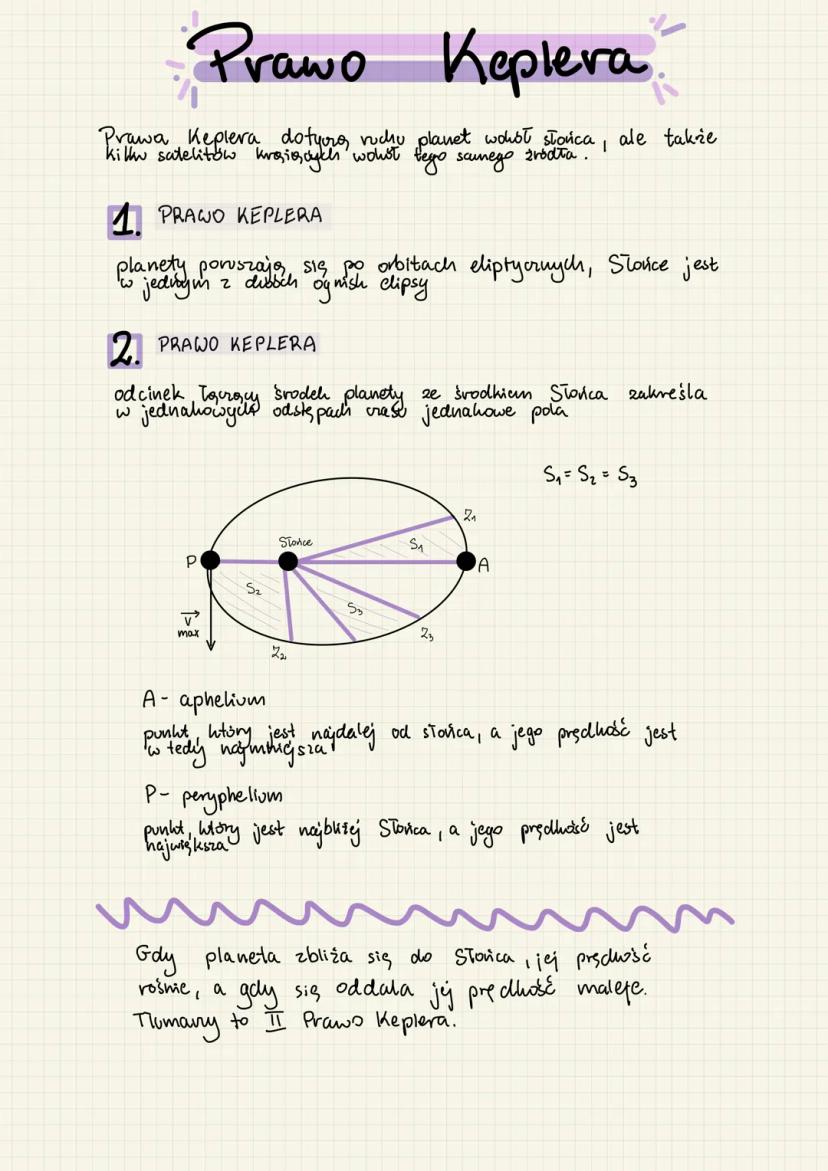 Prawo Keplera
Prawa Keplera dotyczą ruchu planet wokół słońca, ale także
kilku satelitów krążących wokół tego samego źródła.
1. PRAWO KEPLERA
planety poruszają się po orbitach eliptycznych, Słońce jest
w jednym z dwóch ognisk elipsy
2. PRAWO KEPLERA
odcinek łączący środek planety ze środkiem Słońca zakreśla
w jednakowych odstępach czasu jednakowe pola
S₁ = S₂ = S₃
Z₁
Słońce
S₁
P
A
S₂
S₃
V
max
Z₃
Z₂
A - aphelium
punkt, który jest najdalej od słońca, a jego prędkość jest
w tedy najmniejsza
P - peryphelium
punkt, który jest najbliżej Słońca, a jego prędkość jest
największa
Gdy planeta zbliża się do Słońca, jej prędkość
rośnie, a gdy się oddala jej prędkość maleje.
Tłumaczy to II Prawo Keplera.